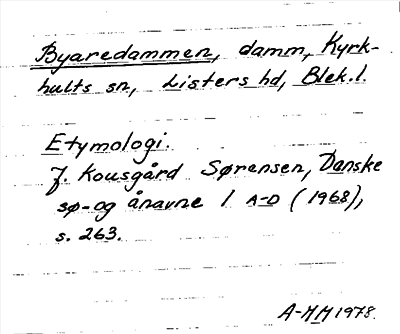 Byaredammen, damm, Kyrk-
hults sn, Listers hd, Blek.l.
Etymologi.
J. Kousgård Sørensen, Danske
sø- og ånavne 1 A-D (1968),
s. 263.
A-MM 1978.